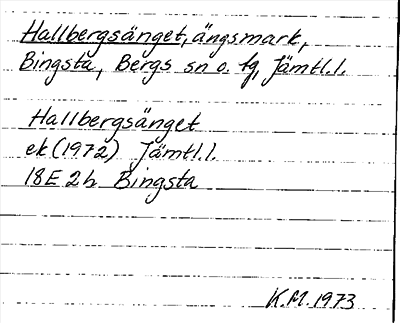 Hallbergsänget, ängsmark,
Bingsta, Bergs sn o. tg, Jämtl. l.
Hallbergsänget
ek (1972) Jämtl. l.
18E 2h Bingsta
K.M. 1973